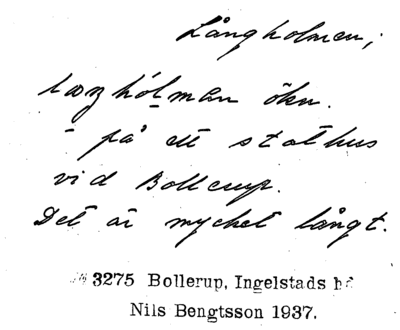 Långholmen;
långhólman ökn.
- på ett stathus
vid Bollerup.
Det är mycket långt.
3275 Bollerup, Ingelstads hd
Nils Bengtsson 1937.